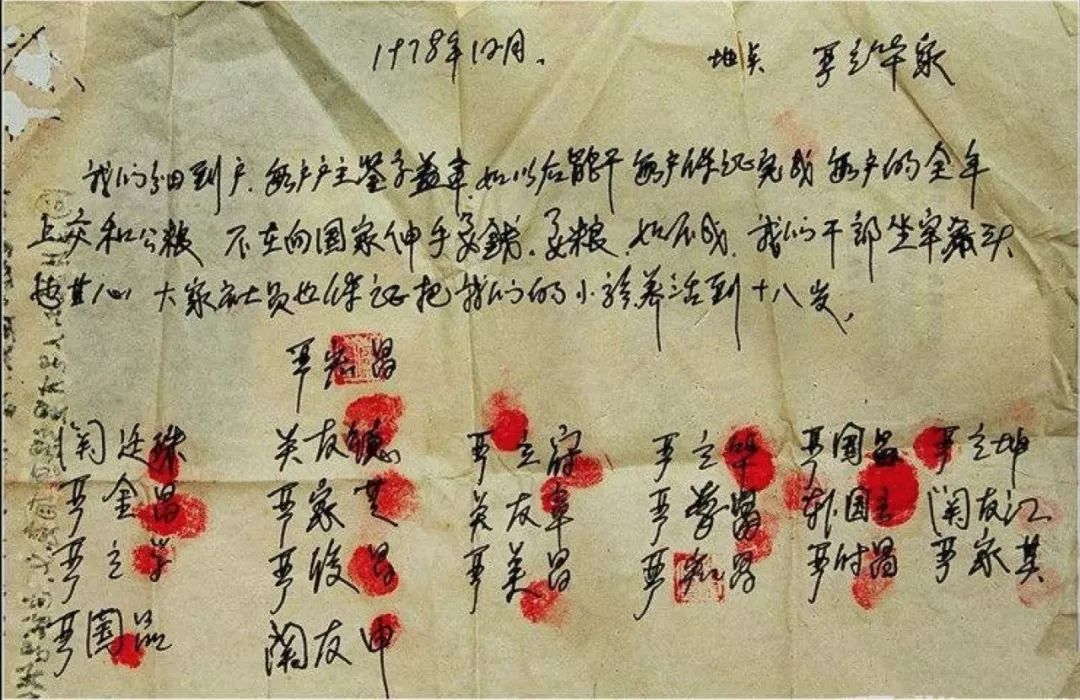 1978年12月. 地点 严立华家
我们分田到户.每户户主签字盖章.如以后能干每户保证完成每户的全年
上交和公粮 不在向国家伸手要钱.要粮.如不成.我们干部坐牢杀头
也甘心. 大家社员也保证把我们的小孩养活到十八岁.
严宏昌
関廷珠 关友德 严立符 严立华 严国昌 严立坤
严金昌 严家芝 关友章 严学昌 韩国云 関友江
严立学 严俊昌 严美昌 严宏昌 严付昌 严家其
严国品 関友申